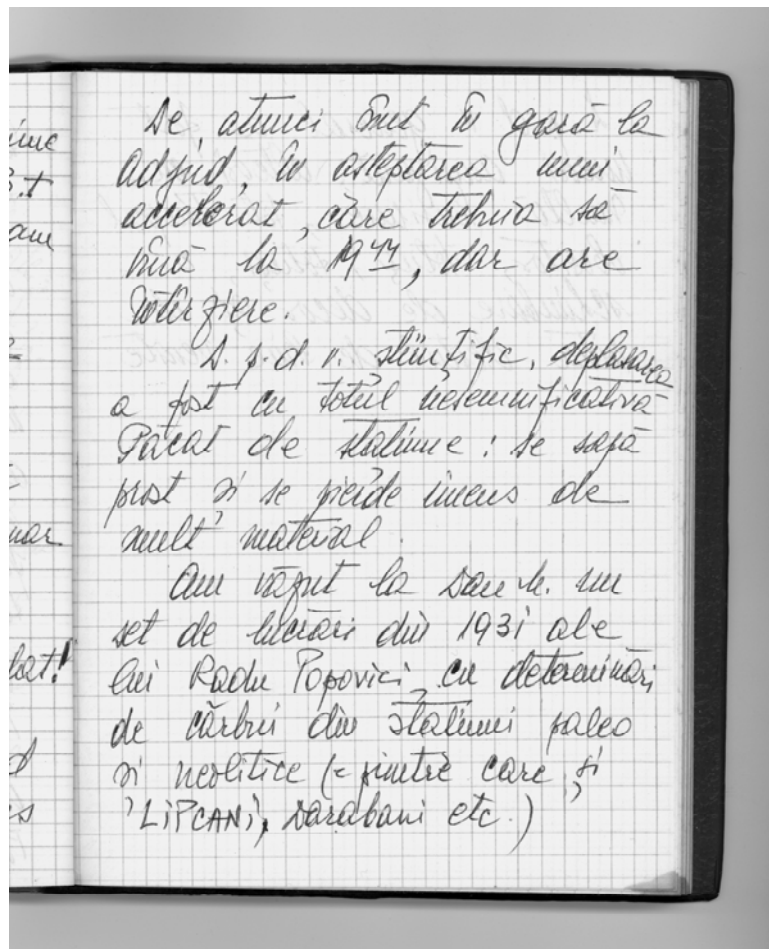 De atunci sînt în gară la
Adjud, în așteptarea unui
accelerat, care trebuia să
vină la 19 44, dar are
întîrziere.
D. p. d. v. stiințific, deplasarea
a fost cu totul nesemnificativă
Păcat de stațiune : se sapă
prost și se pierde imens de
mult material.
Am văzut la Dan M. un
set de lucrări din 1931 ale
lui Radu Popovici, cu determinări
de cărbuni din stațiuni paleo
și neolitice (= printre care și
LIPCANI, Darabani etc.)
ine
am
nar
bat!
d